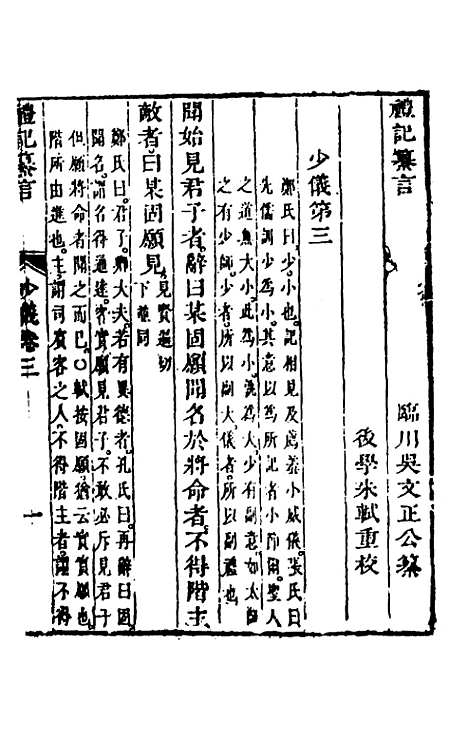 禮記纂言
臨川吳文正公纂
後學朱軾重校
少儀第三
鄭氏曰少小也記相見及薦羞小威儀張氏曰
先儒訓少爲小其意以爲所記者小節爾聖人
之道無大小此爲小儀爲少有副意如太師
之有少師少者所以副大儀者所以副禮也
聞始見君子者辭曰某固願聞名於將命者不得階主
敵者曰某固願見見賢遍切下並同
鄭氏曰君子卿大夫若有異德者孔氏曰再辭曰固
聞名謂名得通達客實願見君子不敢必斥見君子
但願將命者聞之而已○軾按固願猶云實實願也
階所由進也主謂司賓客之人不得階主者謂不得
禮記纂言
少儀卷三
一